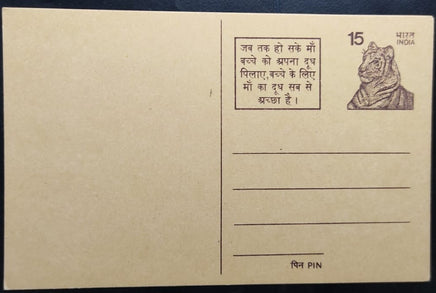 जब तक हो सके माँ
बच्चे को अपना दूध
पिलाए, बच्चे के लिए
माँ का दूध सब से
अच्छा है।
15
भारत
INDIA
पिन PIN